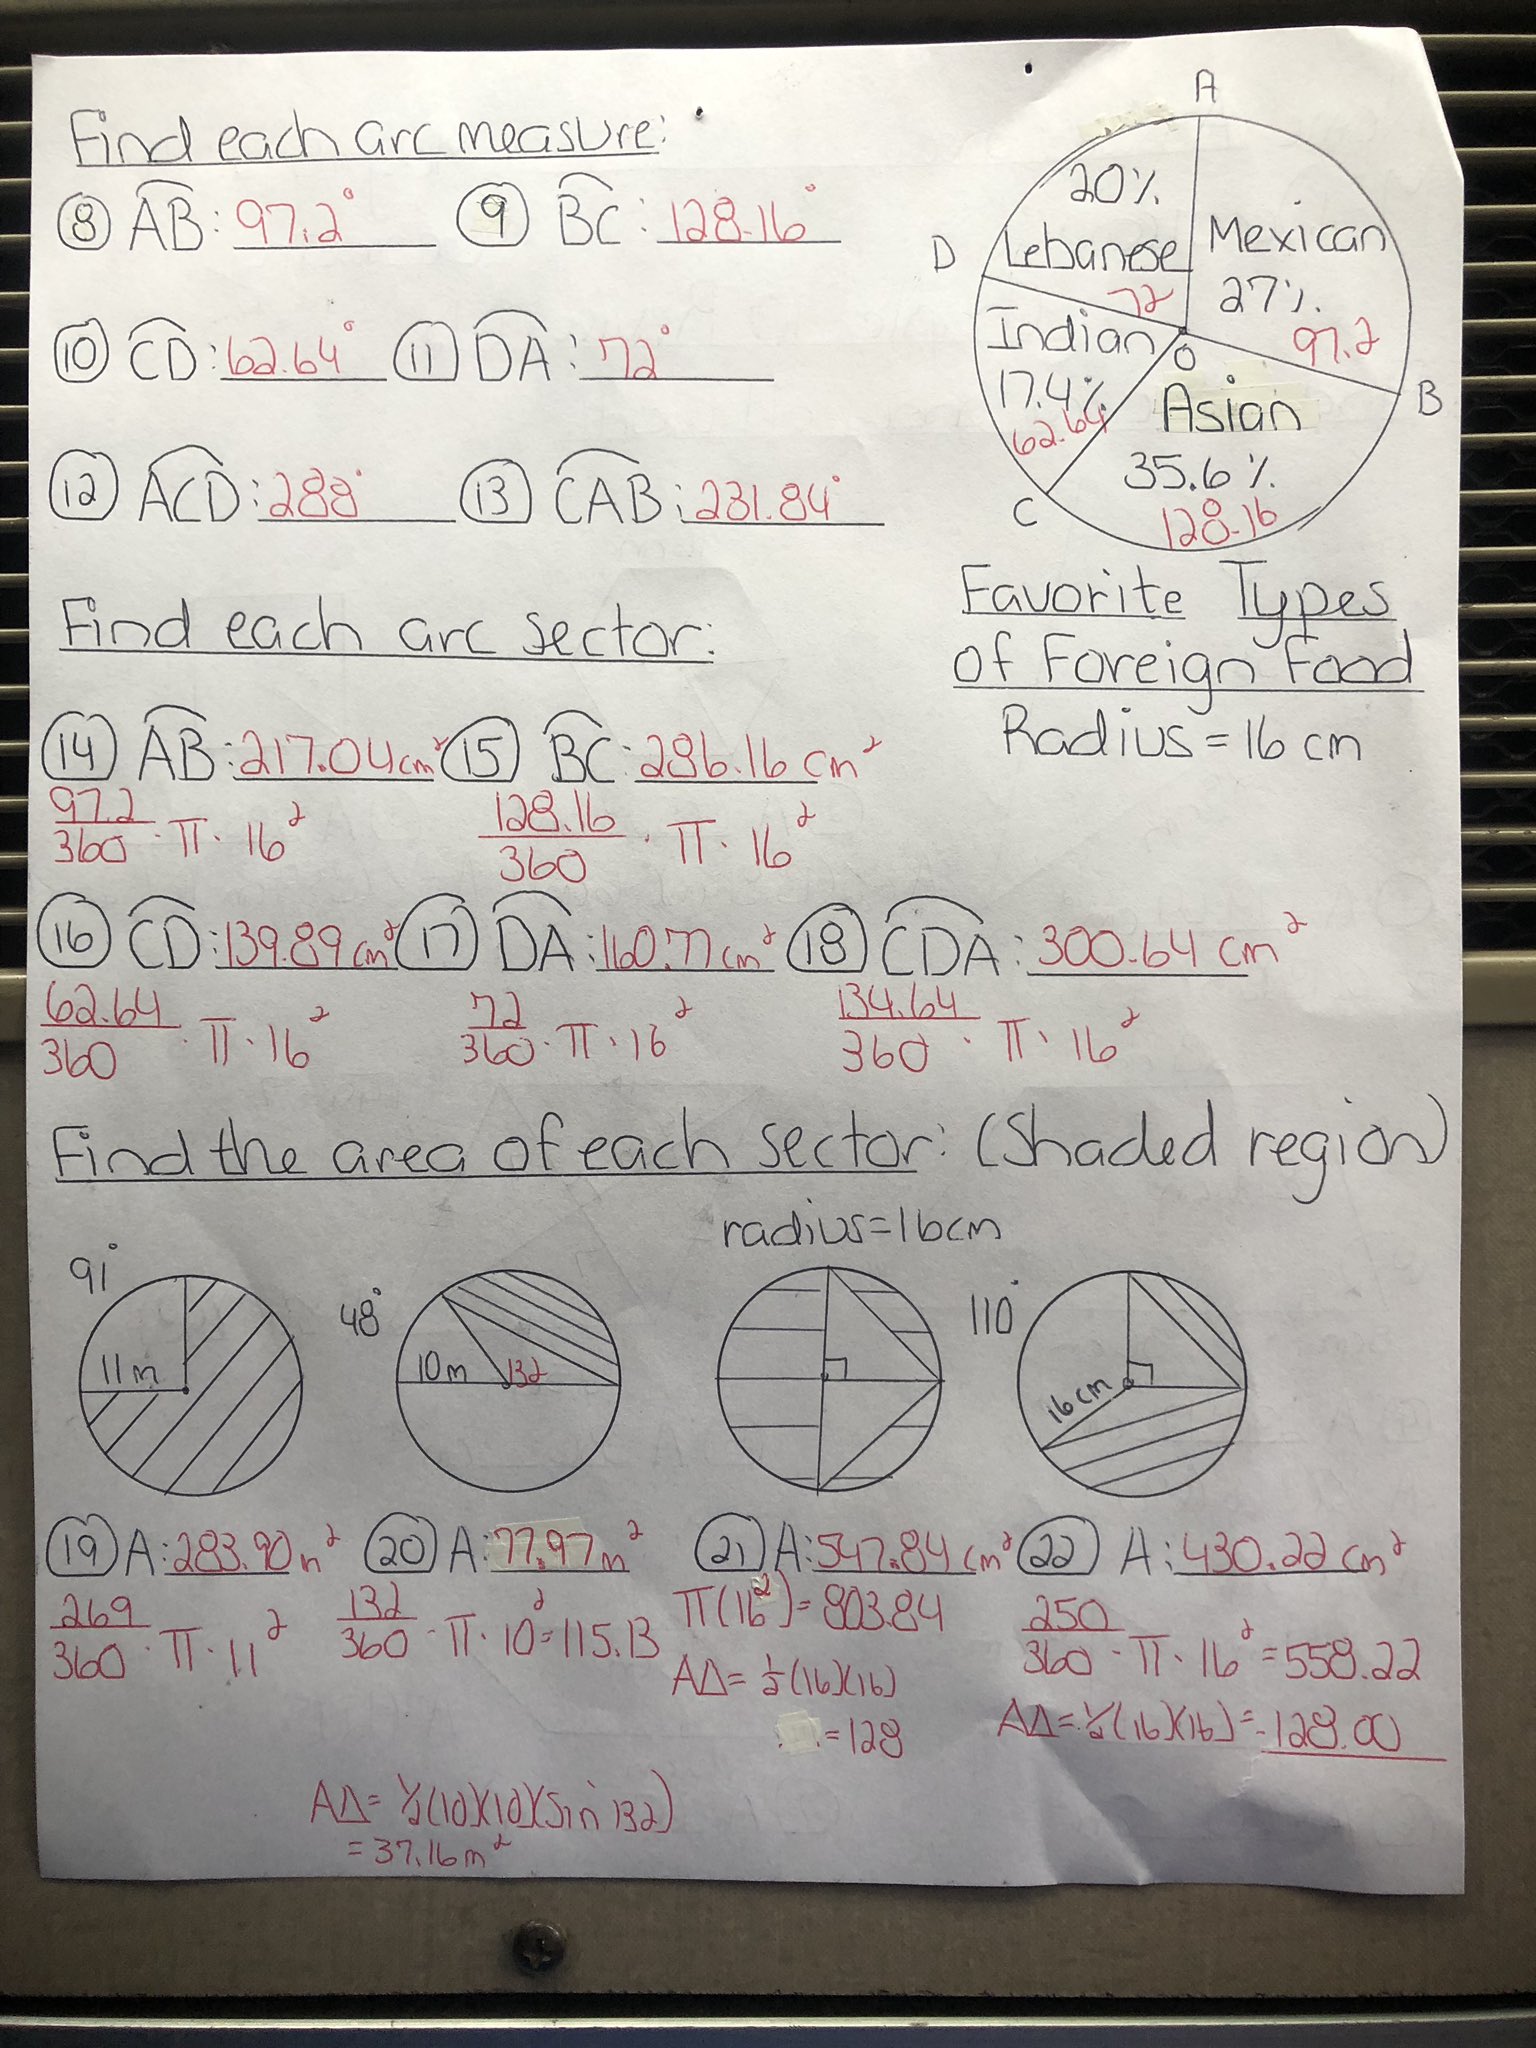 Find each arc measure:
A
⑧ AB: 97.2° ⑨ BC: 128.16°
20% Lebanese 72
Mexican 27% 97.2
D
Indian 17.4% 62.64
O
B
⑩ CD: 62.64° ⑪ DA: 72°
Asian 35.6% 128.16
C
⑫ ACD: 288° ⑬ CAB: 231.84°
Favorite Types
of Foreign Food
Radius = 16 cm
Find each arc sector:
⑭ AB: 217.04cm² ⑮ BC: 286.16 cm²
97.2/360 · π · 16² 128.16/360 · π · 16²
⑯ CD: 139.89 cm² ⑰ DA: 160.77 cm² ⑱ CDA: 300.64 cm²
62.64/360 · π · 16² 72/360 · π · 16² 134.64/360 · π · 16²
Find the area of each sector: (shaded region)
radius=16cm
91° 48° 110°
11m 10m 132 16cm
⑲ A: 283.90 m² ⑳ A: 77.97 m² ㉑ A: 547.84 cm² ㉒ A: 430.22 cm²
269/360 · π · 11² 132/360 · π · 10² = 115.13 π(16²) = 803.84 250/360 · π · 16² = 558.22
A∆= ½(16)(16) A∆= ½(16)(16) = -128.00
= 128
A∆= ½(10)(10)(sin 132)
= 37.16m²